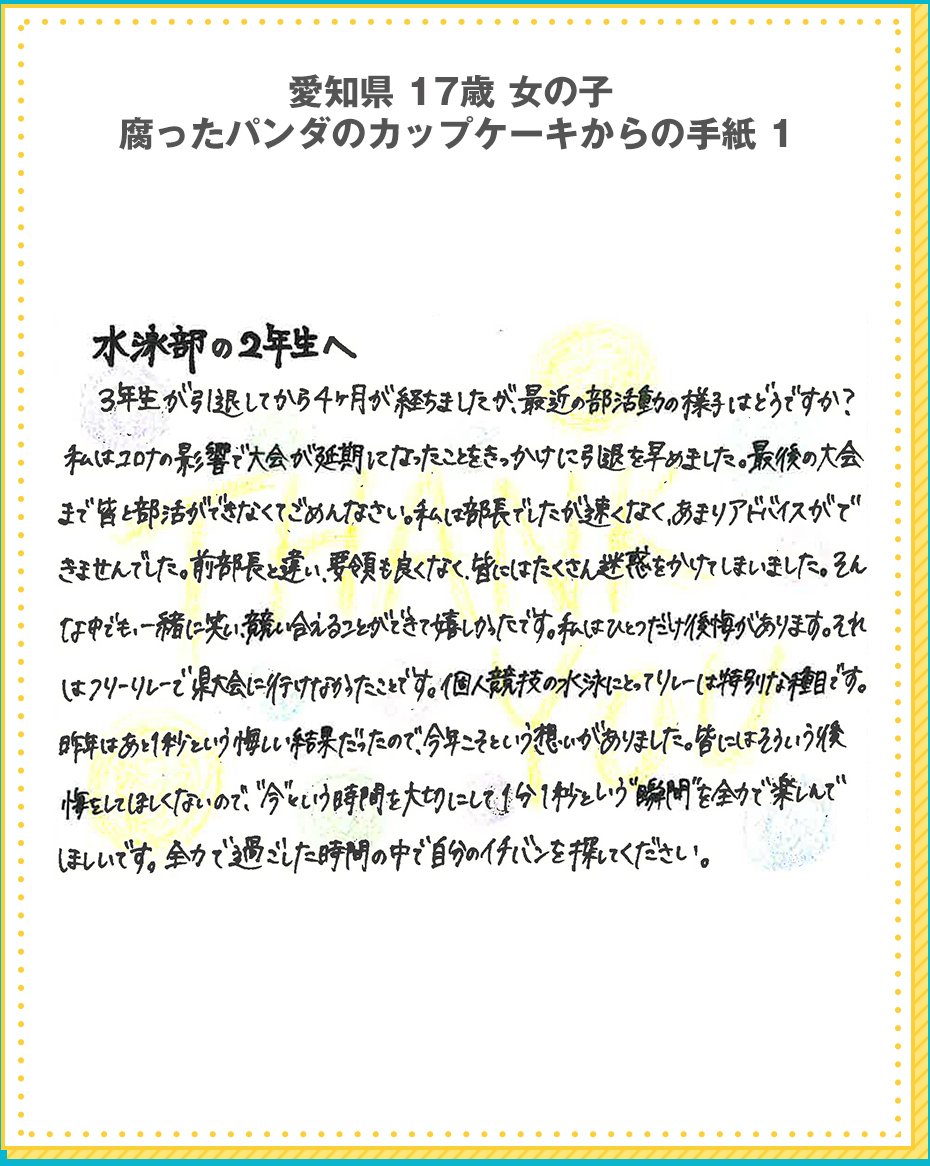 愛知県 17歳 女の子
腐ったパンダのカップケーキからの手紙 1
水泳部の2年生へ
3年生が引退してから4ヶ月が経ちましたが、最近の部活動の様子はどうですか?
私はコロナの影響で大会が延期になったことをきっかけに引退を早めました。最後の大会
まで皆と部活ができなくてごめんなさい。私は部長でしたが速くなく、あまりアドバイスがで
きませんでした。前部長と違い、要領も良くなく、皆にはたくさん迷惑をかけてしまいました。そん
な中でも、一緒に笑い、競い合えることができて嬉しかったです。私はひとつだけ後悔があります。それ
はフリーリレーで県大会に行けなかったことです。個人競技の水泳にとってリレーは特別な種目です。
昨年はあと1秒という悔しい結果だったので、今年こそという想いがありました。皆にはそういう後
悔をしてほしくないので、"今"という時間を大切にして1分1秒という"瞬間"を全力で楽しんで
ほしいです。全力で過ごした時間の中で自分のイチバンを探してください。
THANK
YOU